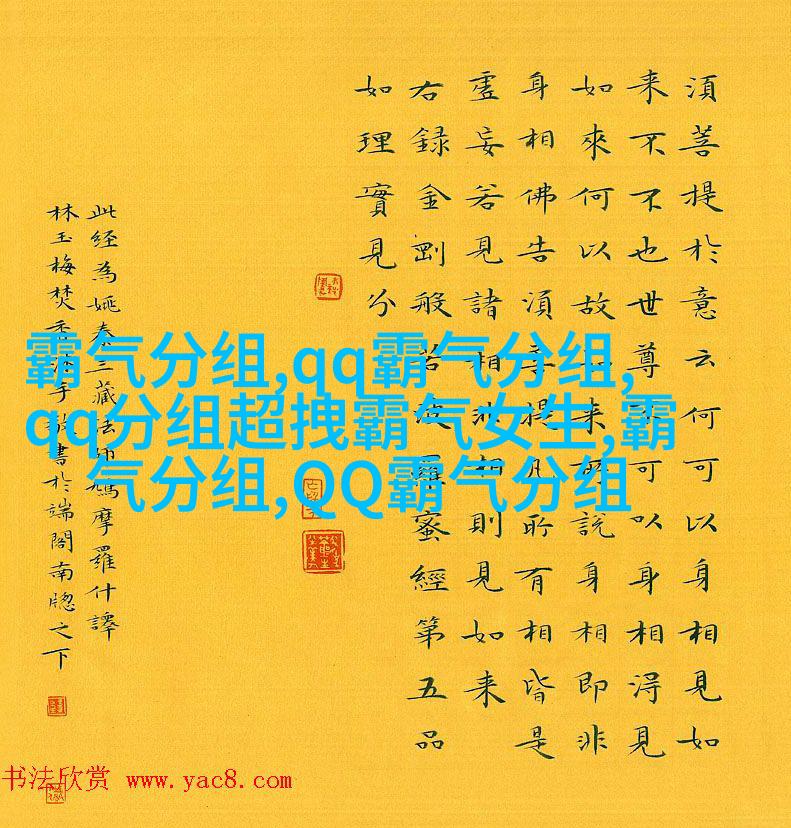 須菩提於意云何可以身相見如
来不不也世尊不可以身相淂見
如來何以故如来所説身相即非
身相佛告須菩提凡所有相皆是
虛妄若見諸相非相則見如来
右録金剛般若波羅蜜經第五品
如理實見分
此经為姚秦三藏法師鳩摩羅什譯
林玉梅焚香沐手敬書於端閣南牕之下
霸气分组,qq霸气分组,
qq分组超拽霸气女生,霸
气分组,QQ霸气分组
书法欣赏 www.yac8.com